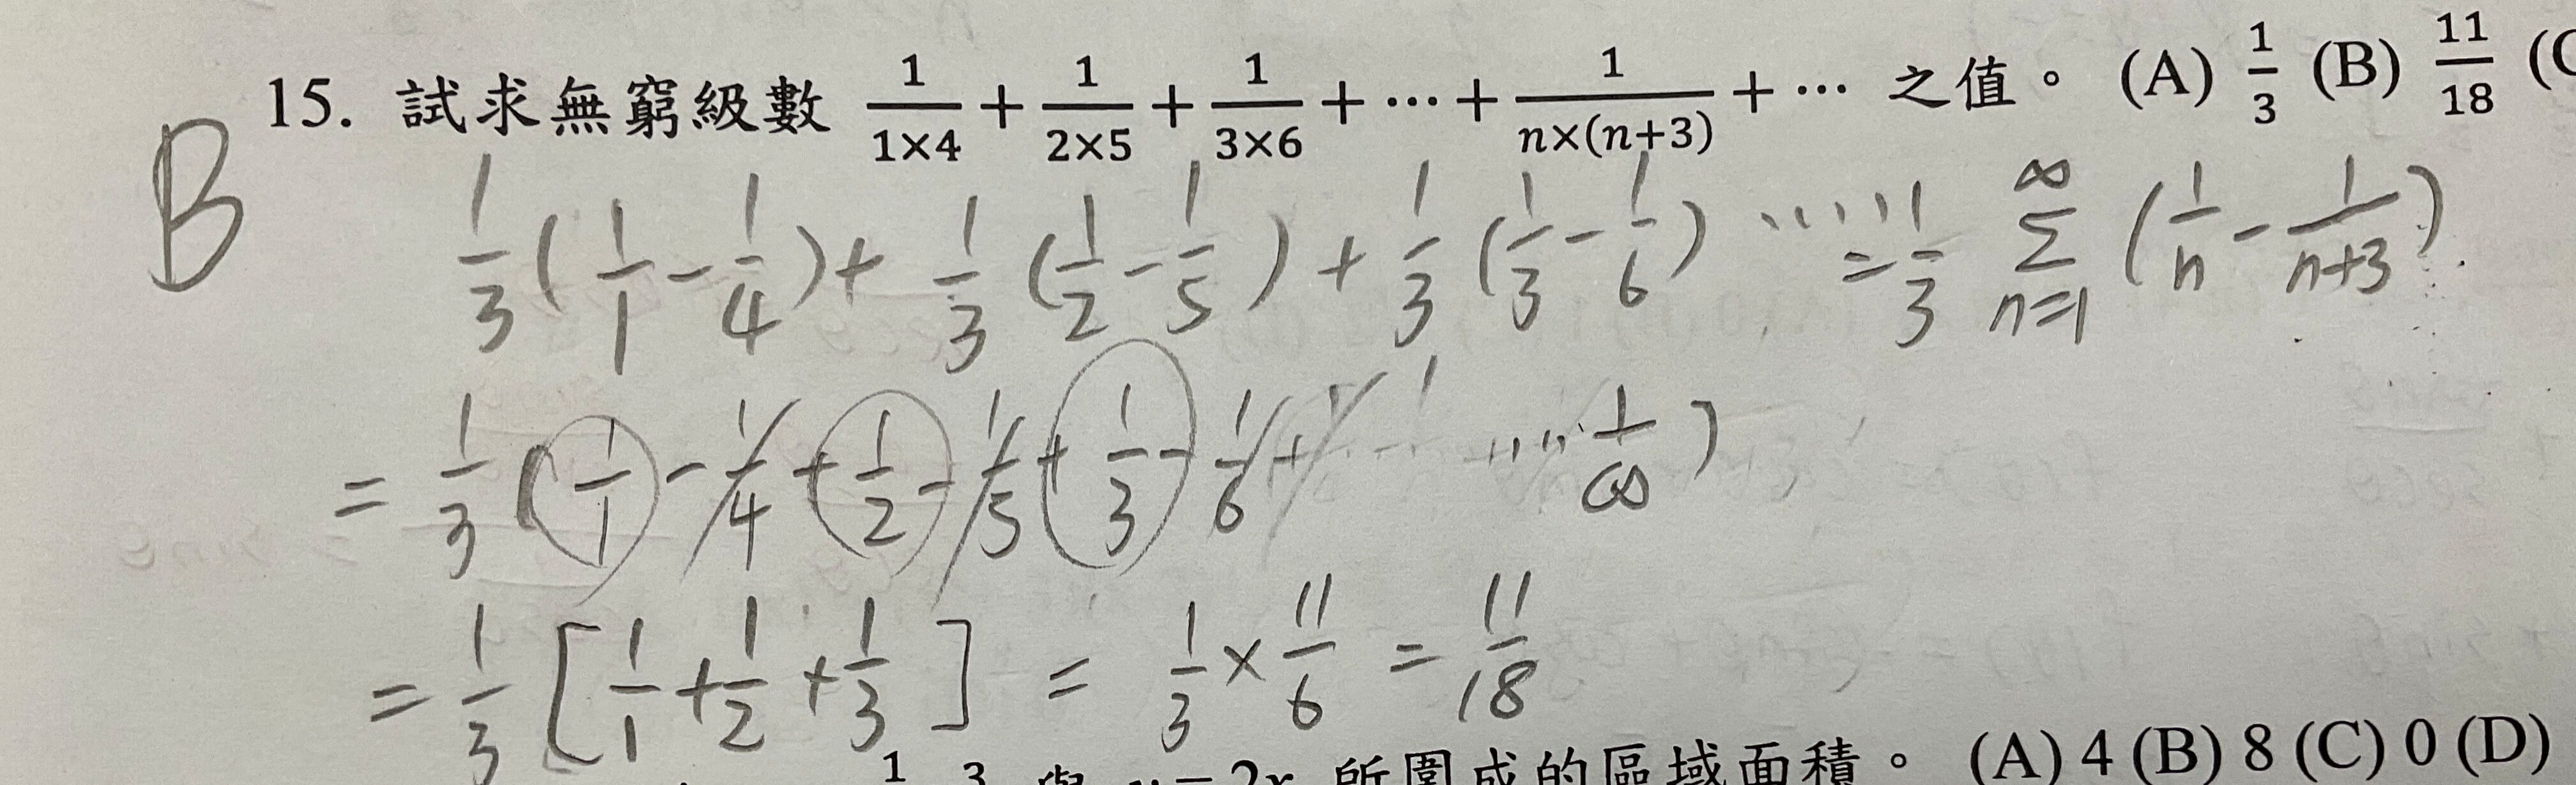 15. 試求無窮級數 1/(1×4) + 1/(2×5) + 1/(3×6) + ⋯ + 1/(n×(n+3)) + ⋯ 之值。 (A) 1/3 (B) 11/18 (C
B
1/3 (1/1 - 1/4) + 1/3 (1/2 - 1/5) + 1/3 (1/3 - 1/6) ...... = 1/3 ∑_{n=1}^{∞} (1/n - 1/(n+3))
= 1/3 (1/1 - 1/4 + 1/2 - 1/5 + 1/3 - 1/6 + ...... 1/∞)
= 1/3 [1/1 + 1/2 + 1/3] = 1/3 × 11/6 = 11/18
所圍成的區域面積。 (A) 4 (B) 8 (C) 0 (D)